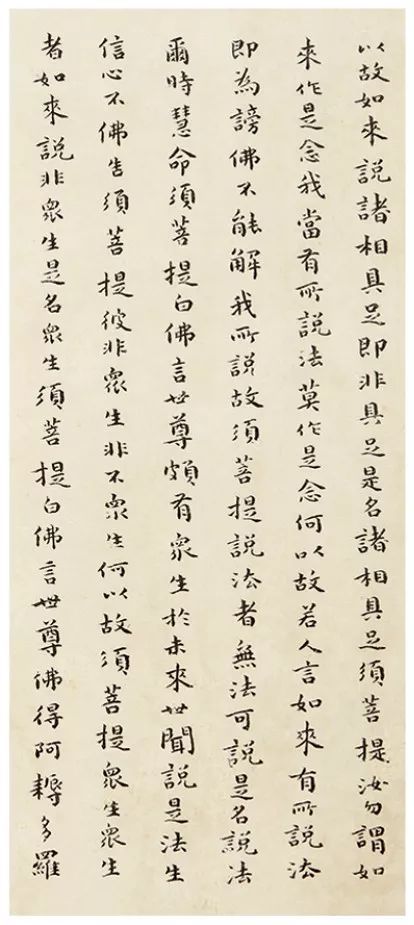 以故如來說諸相具足即非具足是名諸相具足須菩提汝勿謂如
來作是念我當有所說法莫作是念何以故若人言如來有所說法
即為謗佛不能解我所說故須菩提說法者無法可說是名說法
爾時慧命須菩提白佛言世尊頗有眾生於未來世聞說是法生
信心不佛告須菩提彼非眾生非不眾生何以故須菩提眾生眾生
者如來說非眾生是名眾生須菩提白佛言世尊佛得阿耨多羅